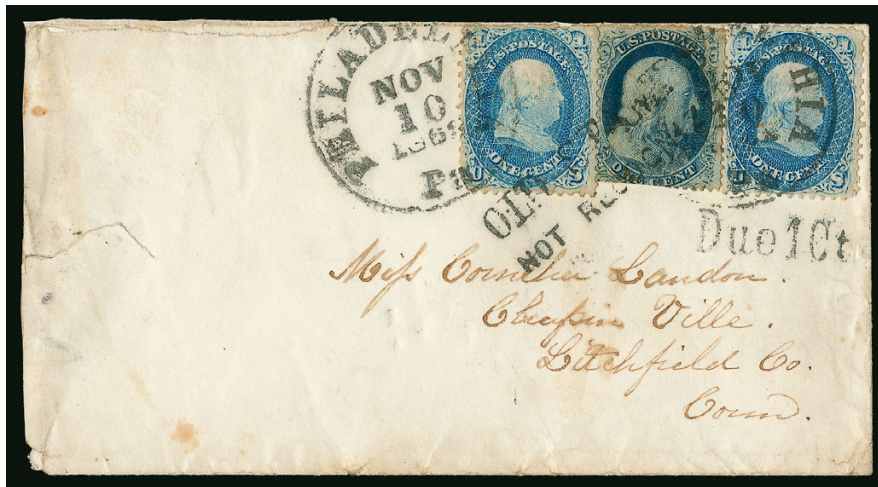 PHILADELPHIA
NOV
10
186
Pa
U.S. POSTAGE
ONE CENT
U.S. POSTAGE
ONE CENT
U.S. POSTAGE
ONE CENT
OLD
NOT
Due 1 Ct
Miss Cornelia Landon.
Chapin Ville.
Litchfield Co.
Conn.